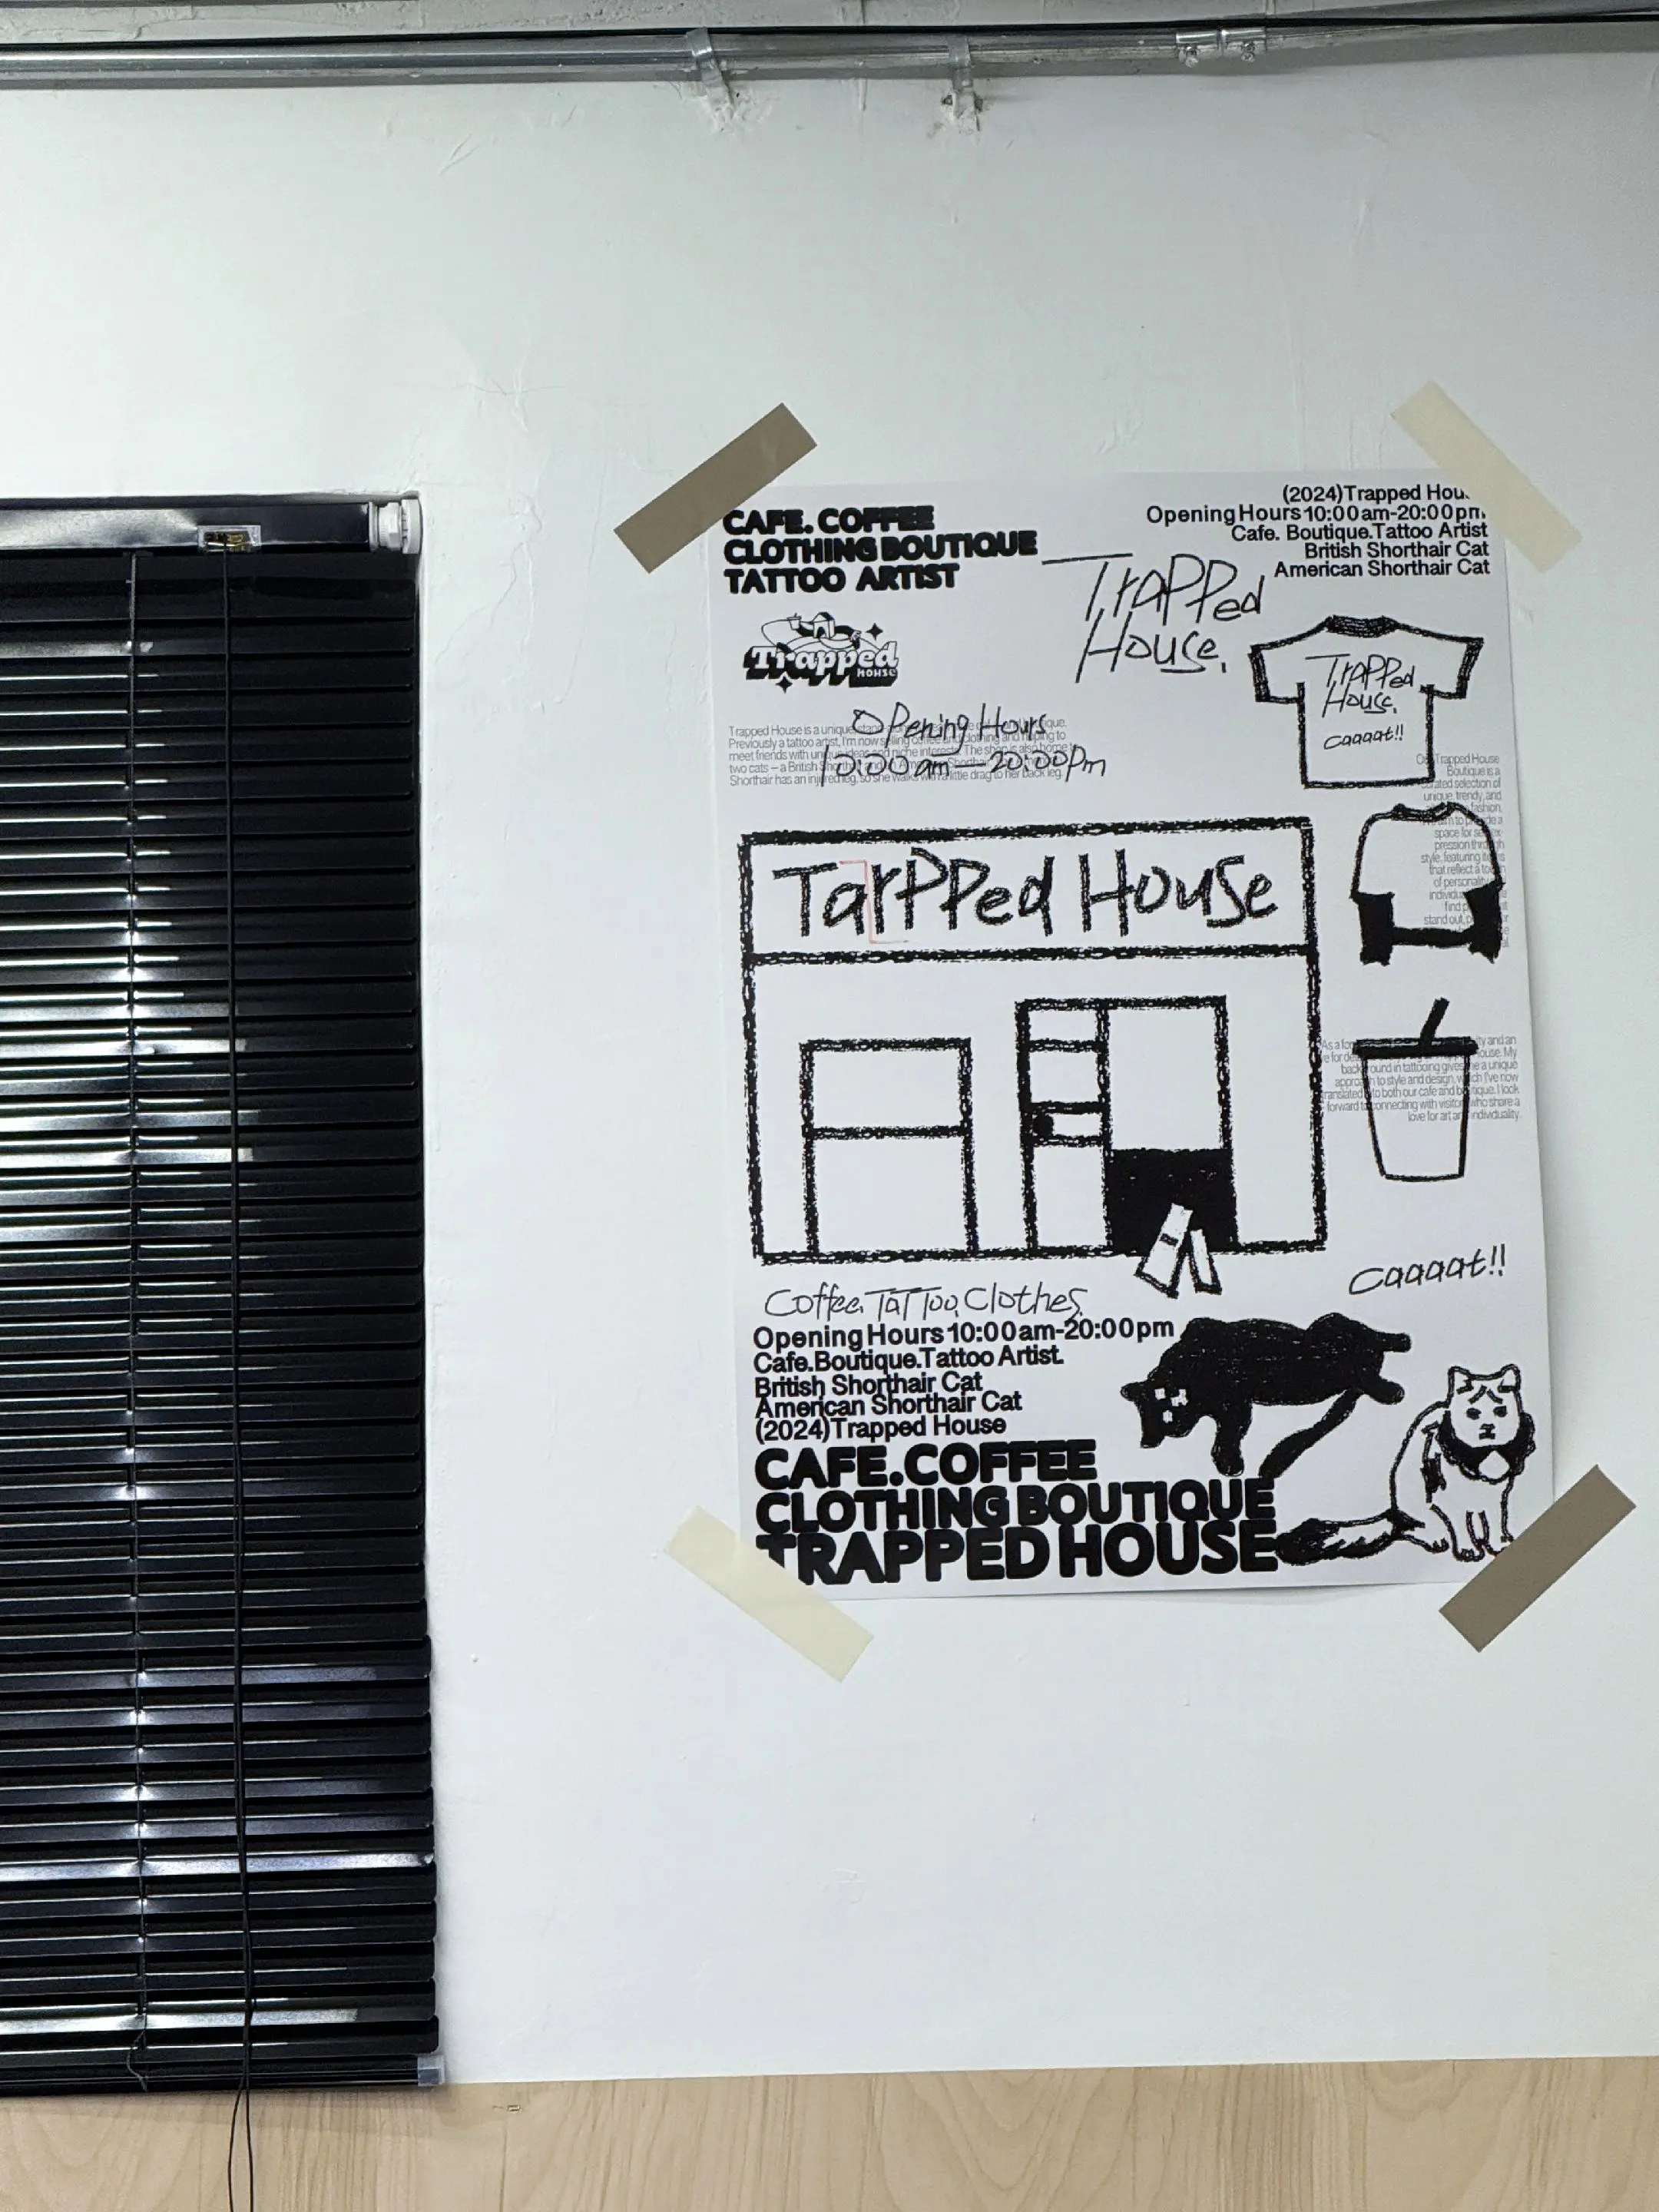 CAFE. COFFEE
CLOTHING BOUTIQUE
TATTOO ARTIST
(2024)Trapped Hou
Opening Hours 10:00am-20:00pm
Cafe. Boutique.Tattoo Artist
British Shorthair Cat
American Shorthair Cat
TrapPed
House.
Trapped
HOUSE
TrapPed
House.
caaaat!!
Opening Hours
10:00am—20:00Pm
Trapped House is a unique
Previously a tattoo artist, I'm now selling
meet friends with unique ideas and niche interests. The shop is also home to
two cats – a British
Shorthair has an injured leg, so she walks with a little drag to her back leg.
Trapped House
Boutique is a
selection of
unique, trendy, and
fashion.
space for
style, featuring
that reflect a
of personality
find
stand out,
TarpPed House
ity and an
ouse. My
background in tattooing gives me a unique
approach to style and design, which I've now
translated into both our cafe and boutique. I look
forward to connecting with visitors who share a
love for art and individuality.
Coffee.TaTToo.Clothes.
Opening Hours 10:00am-20:00pm
Cafe.Boutique.Tattoo Artist.
British Shorthair Cat
American Shorthair Cat
(2024)Trapped House
caaaat!!
CAFE.COFFEE
CLOTHING BOUTIQUE
TRAPPED HOUSE